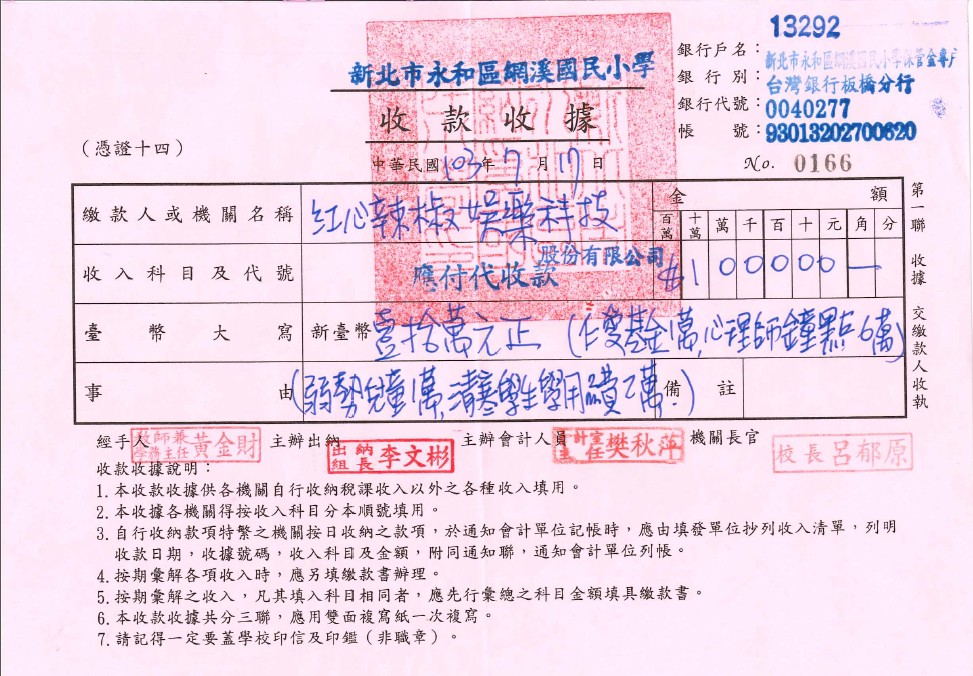 13292
銀行戶名：新北市永和區網溪國民小學保管金專戶
銀行別：台灣銀行板橋分行
銀行代號：0040277
帳號：93013202700620
新北市永和區網溪國民小學
收款收據
（憑證十四）
中華民國103年7月17日
No. 0166
繳款人或機關名稱 紅心辣椒娛樂科技股份有限公司
金額
百萬 十萬 萬 千 百 十 元 角 分
收入科目及代號 應付代收款
$100000—
臺幣大寫 新臺幣壹拾萬元正（仁愛基金1萬,心理師鐘點6萬）
事由（弱勢兒童1萬,清寒學生學用費2萬.）
備註
第一聯 收據 交繳款人收執
經手人 教師兼學務主任黃金財 主辦出納 出納組長李文彬 主辦會計人員 會計室主任樊秋萍 機關長官 校長呂郁原
收款收據說明：
1.本收款收據供各機關自行收納稅課收入以外之各種收入填用。
2.本收據各機關得按收入科目分本順號填用。
3.自行收納款項特繁之機關按日收納之款項，於通知會計單位記帳時，應由填發單位抄列收入清單，列明
收款日期，收據號碼，收入科目及金額，附同通知聯，通知會計單位列帳。
4.按期彙解各項收入時，應另填繳款書辦理。
5.按期彙解之收入，凡其填入科目相同者，應先行彙總之科目金額填具繳款書。
6.本收款收據共分三聯，應用雙面複寫紙一次複寫。
7.請記得一定要蓋學校印信及印鑑（非職章）。